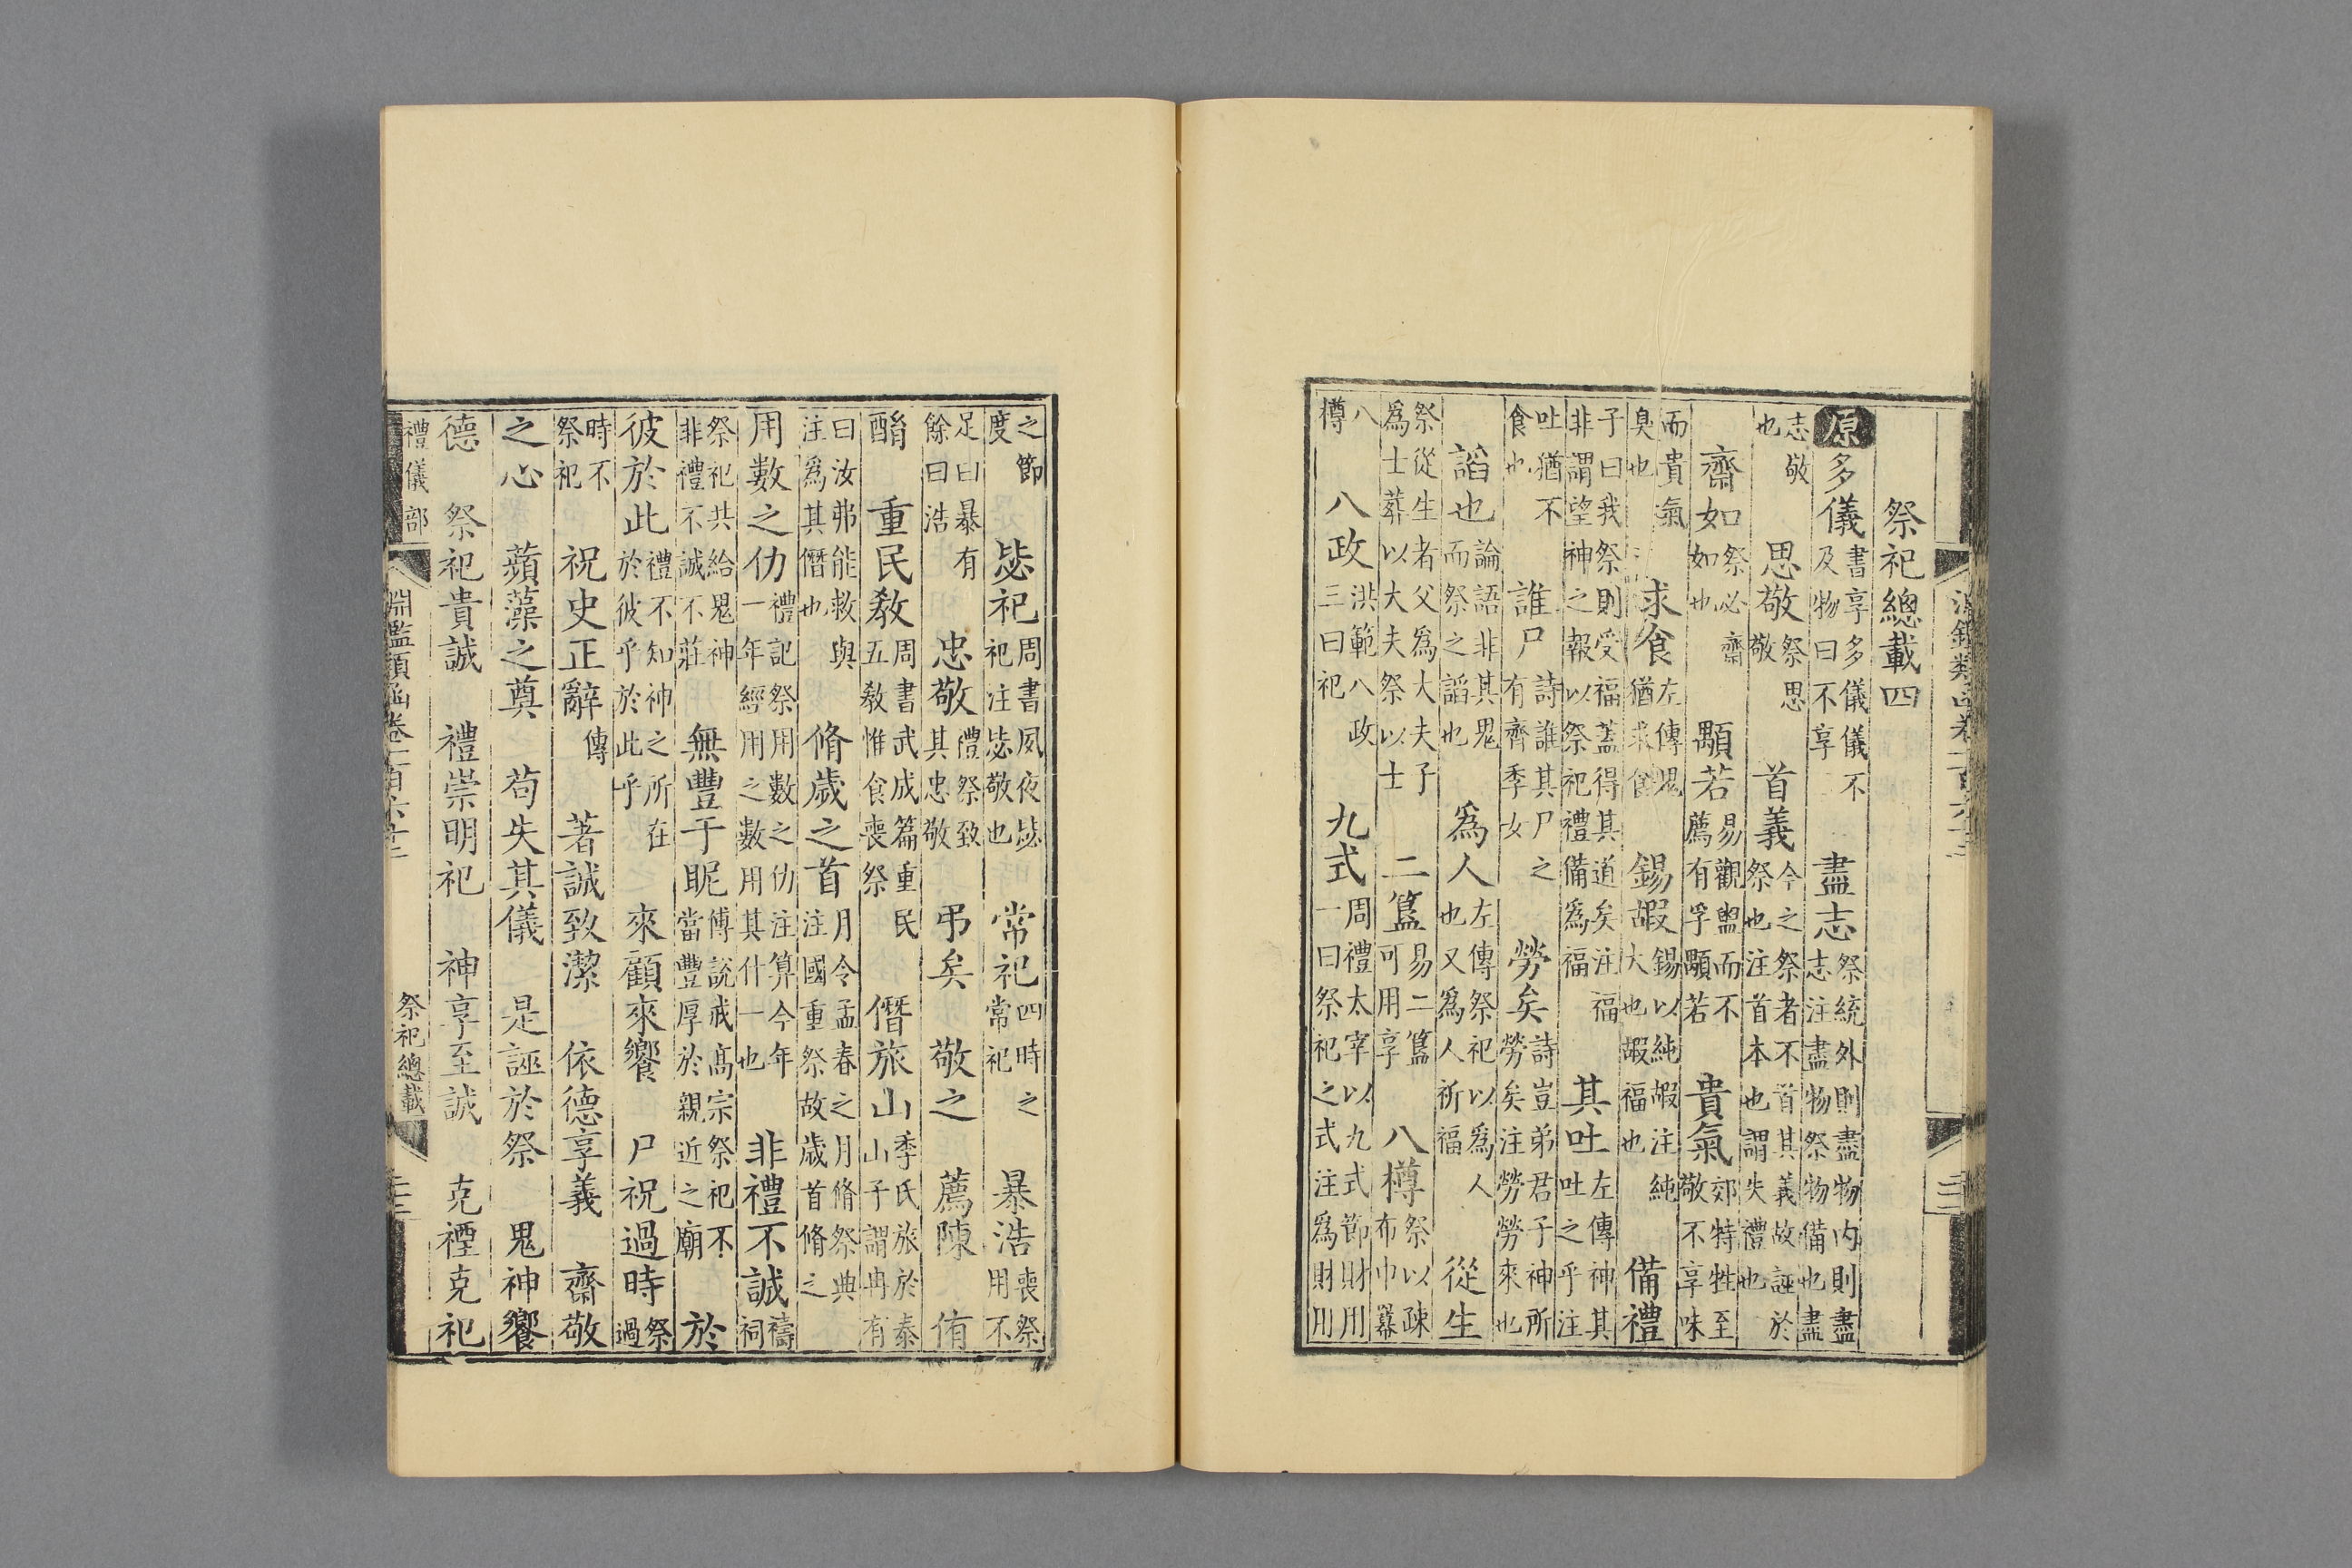 祭祀總載四
原多儀書享多儀儀不及物曰不享 盡志祭統外則盡物内則盡志注盡物祭物備也盡
志敬也 思敬祭思敬 首義今之祭者不首其義故誣於祭也注首本也謂失禮也
齋如祭必齋如也 顒若易觀盥而不薦有孚顒若 貴氣郊特牲至敬不享味
而貴氣臭也 求食左傳鬼猶求食 錫嘏錫以純嘏注純大也嘏福也 備禮
子曰我祭則受福蓋得其道矣注福非謂望神之報以祭祀禮備爲福 其吐左傳神其吐之乎注
吐猶不食也 誰尸詩誰其尸之有齊季女 勞矣詩豈弟君子神所勞矣注勞勞來也
謟也論語非其鬼而祭之謟也 爲人左傳祭祀以爲人也又爲人祈福 從生
祭從生者父爲大夫子爲士葬以大夫祭以士 二簋易二簋可用享 八樽祭以疎布巾羃
八樽 八政洪範八政三曰祀 九式周禮太宰以九式節財用一曰祭祀之式注爲財用
之節度 毖祀周書夙夜毖祀注毖敬也 常祀四時之常祀 暴浩喪祭用不
足曰暴有餘曰浩 忠敬禮祭致其忠敬 弔矣 敬之 薦陳 侑
酳 重民教周書武成篇重民五教惟食喪祭 僭旅山季氏旅於泰山子謂冉有
曰汝弗能救與注爲其僭也 脩歲之首月令孟春之月脩祭典注國重祭故歲首脩之
用數之仂禮記祭用數之仂注算今年一年經用之數用其什一也 非禮不誠禱祠
祭祀共給鬼神非禮不誠不莊 無豐于昵傅說戒高宗祭祀不當豐厚於親近之廟 於
彼於此禮不知神之所在於彼乎於此乎 來顧來饗 尸祝過時祭過
時不祭祀 祝史正辭傳 著誠致潔 依德享義 齋敬
之心 蘋藻之奠 苟失其儀 是誣於祭 鬼神饗
德 祭祀貴誠 禮崇明祀 神享至誠 克禋克祀
禮儀部 淵鑑類函卷一百六十二 祭祀總載